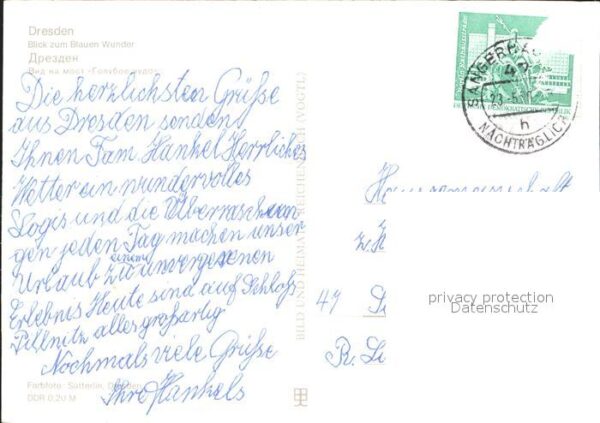 Dresden
Blick zum Blauen Wunder
Дрезден
Вид на мост «Голубое чудо»
Die herzlichsten Grüße
aus Dresden senden
Ihnen Fam Hankel Herrliches
Wetter ein wundervolles
Logis und die Überraschun
gen jeden Tag machen unser
Urlaub zu einem unvergessenen
Erlebnis Heute sind auf Schloß
Pillnitz alles großartig
Nochmals viele Grüße
Ihre Hankels
Farbfoto: Sätterlin, Dresden
DDR 0,20 M
BILD UND HEIMAT REICHENBACH (VOGTL)
SANGERHAUSEN
h
NACHTRÄGLICH
Hausgemeinschaft
z. H
47 S
R. L
privacy protection
Datenschutz